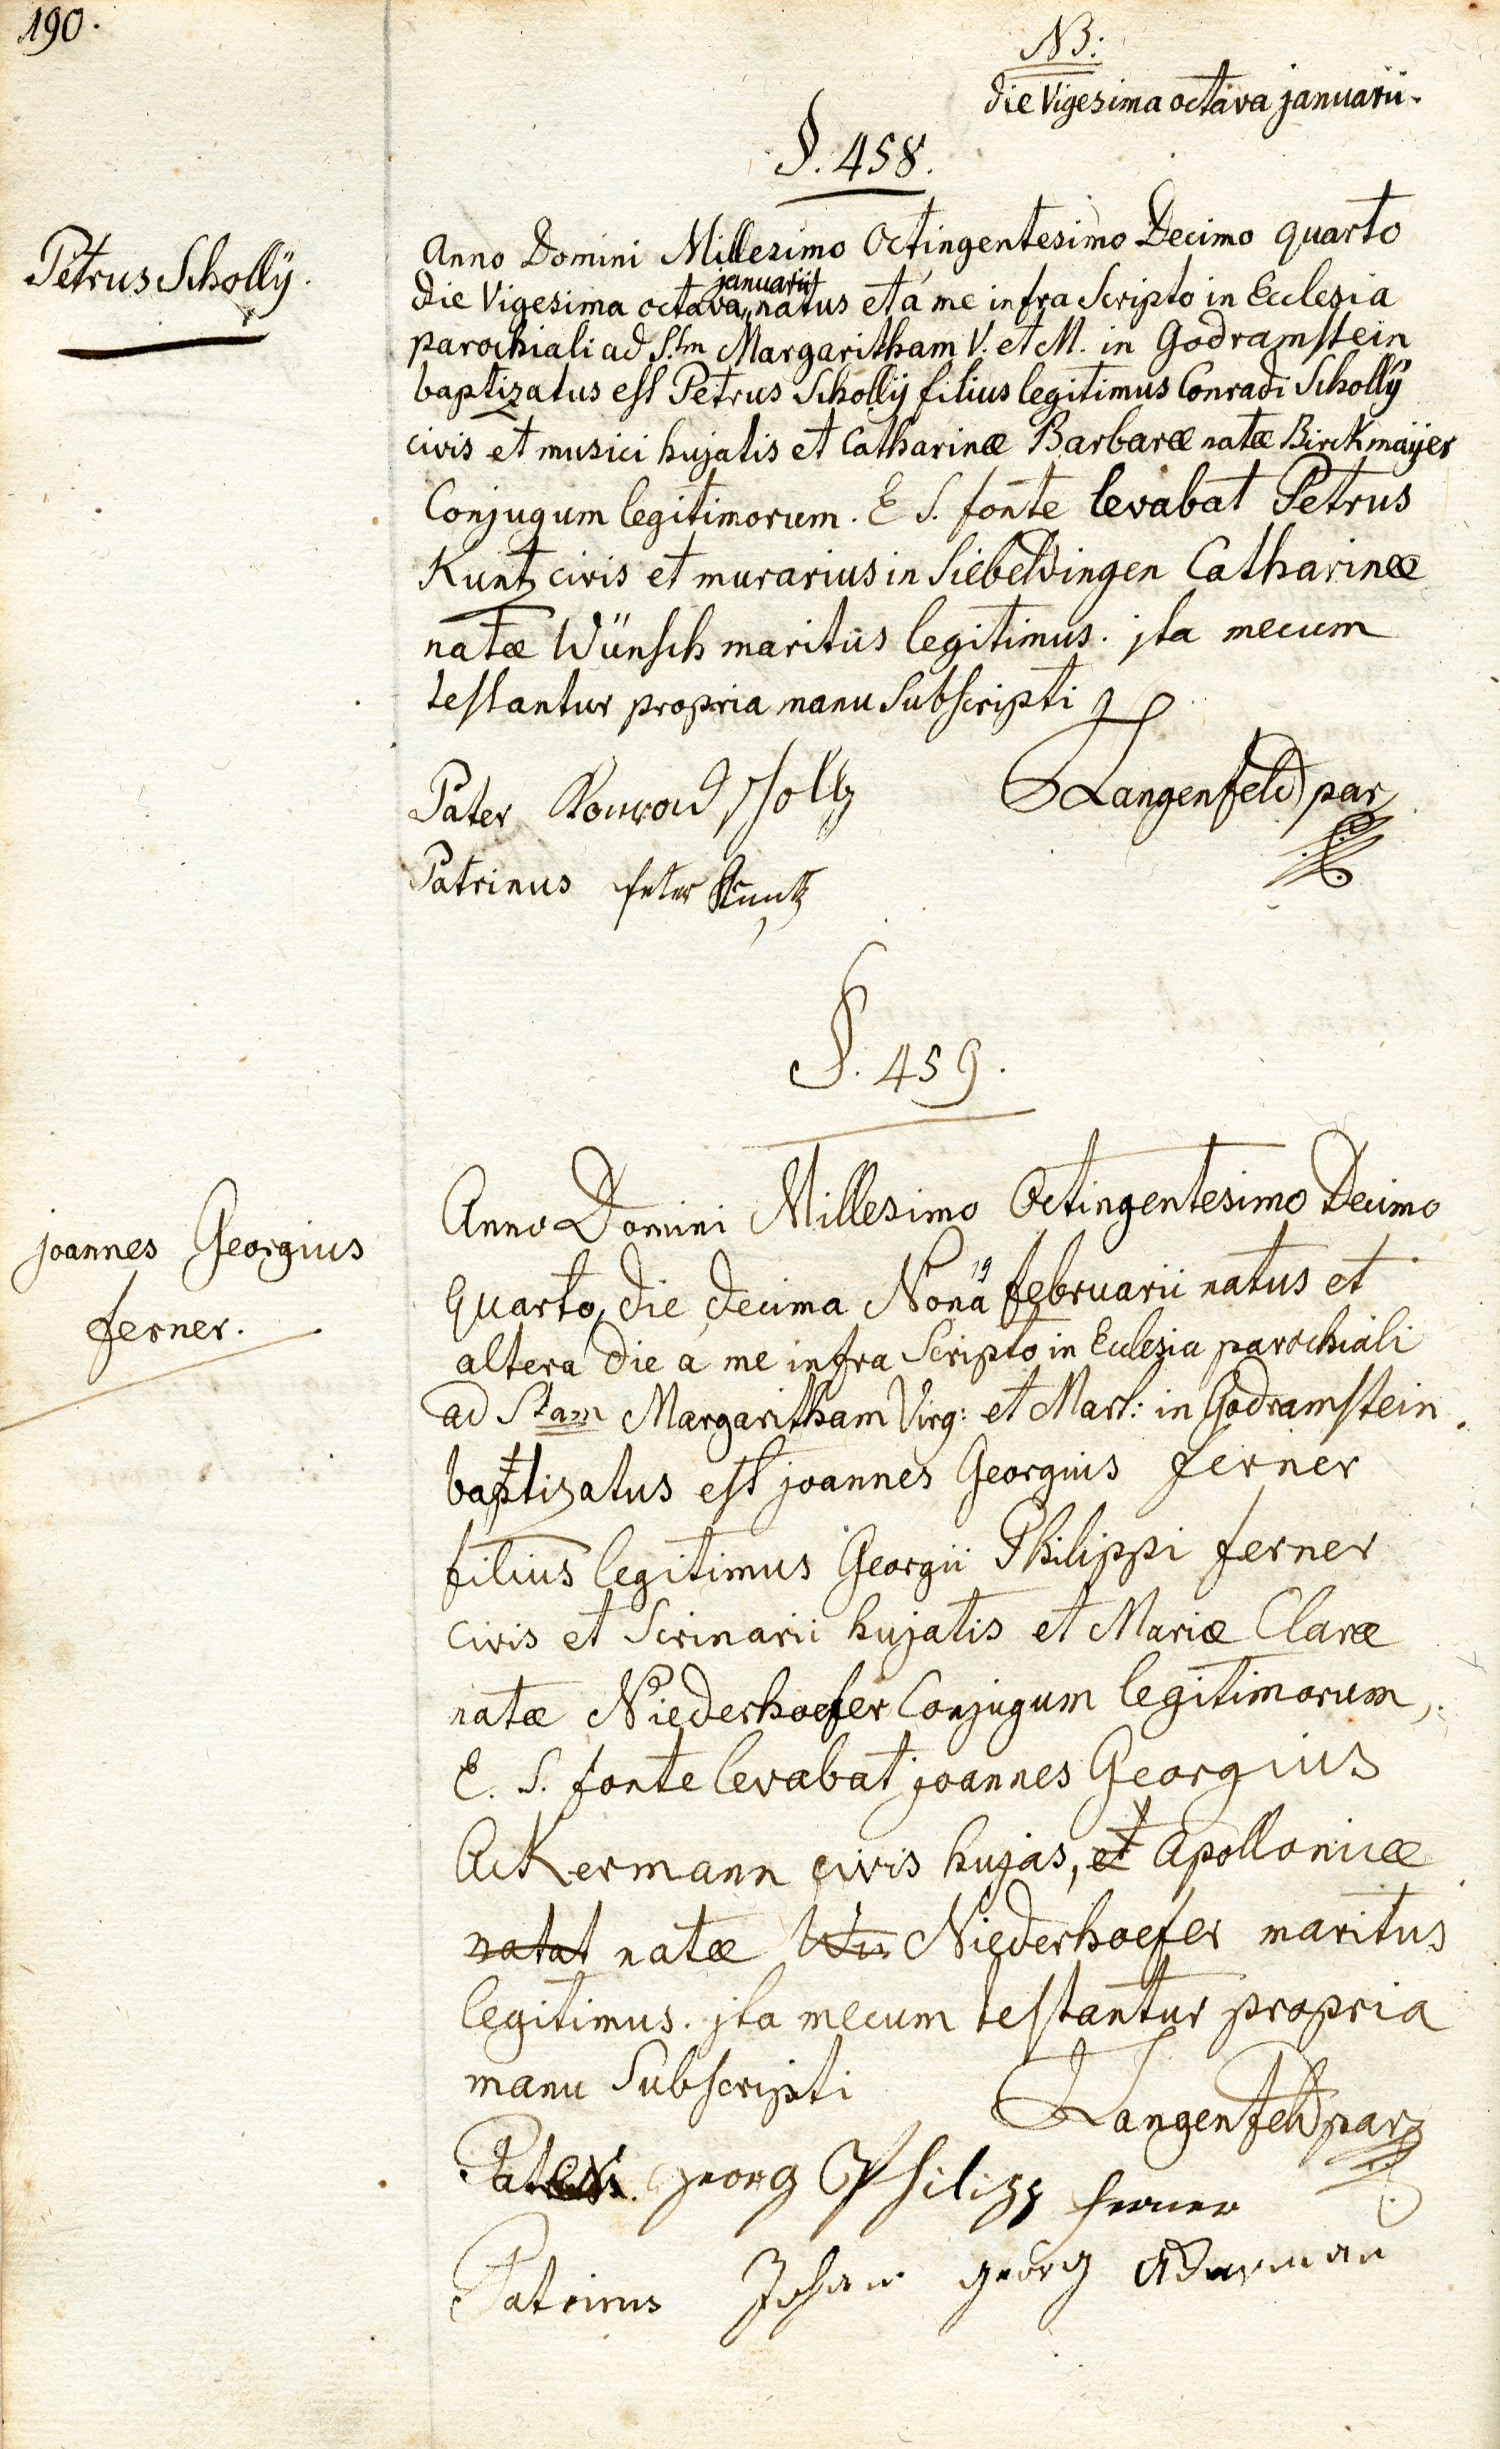 190.
NB:
die Vigesima octava januarii.
§. 458.
Petrus Schollÿ.
Anno Domini Millesimo Octingentesimo Decimo quarto
januarii
die Vigesima octava natus et á me infra Scripto in Ecclesia
parochiali ad S.tm Margaritham V. et M. in Godramstein
baptizatus est Petrus Schollÿ filius legitimus Conradi Schollÿ
civis et musici hujatis et Catharinæ Barbaræ natæ Birckmaÿer
Conjugum legitimorum. E S. fonte levabat Petrus
Kuntz civis et murarius in Siebeldingen Catharinæ
natæ Wünsch maritus legitimus. jta mecum
testantur propria manu Subscripti
Pater Konrad Scholly
Langenfeld par
Patrinus Peter Kuntz
§. 459.
joannes Georgius
ferner.
Anno Domini Millesimo Octingentesimo Decimo
19
Quarto, die decima Nona februarii natus et
altera die a me infra Scripto in Eclesia parochiali
ad Stam Margaritham Virg: et Mart: in Godramstein
baptizatus est joannes Georgius ferner
filius legitimus Georgii Philippi ferner
civis et Scrinarii hujatis et Mariæ Claræ
natæ Niederhoefer Conjugum legitimorum,.
E. S. fonte levabat joannes Georgius
Ackermann civis hujas, et Apolloniæ
natat natæ Wü Niederhoefer maritus
legitimus. jta mecum testantur propria
manu Subscripti
Langenfeld par
Pater Georg Philipp ferner
Patrinus Johan georg Ackerman